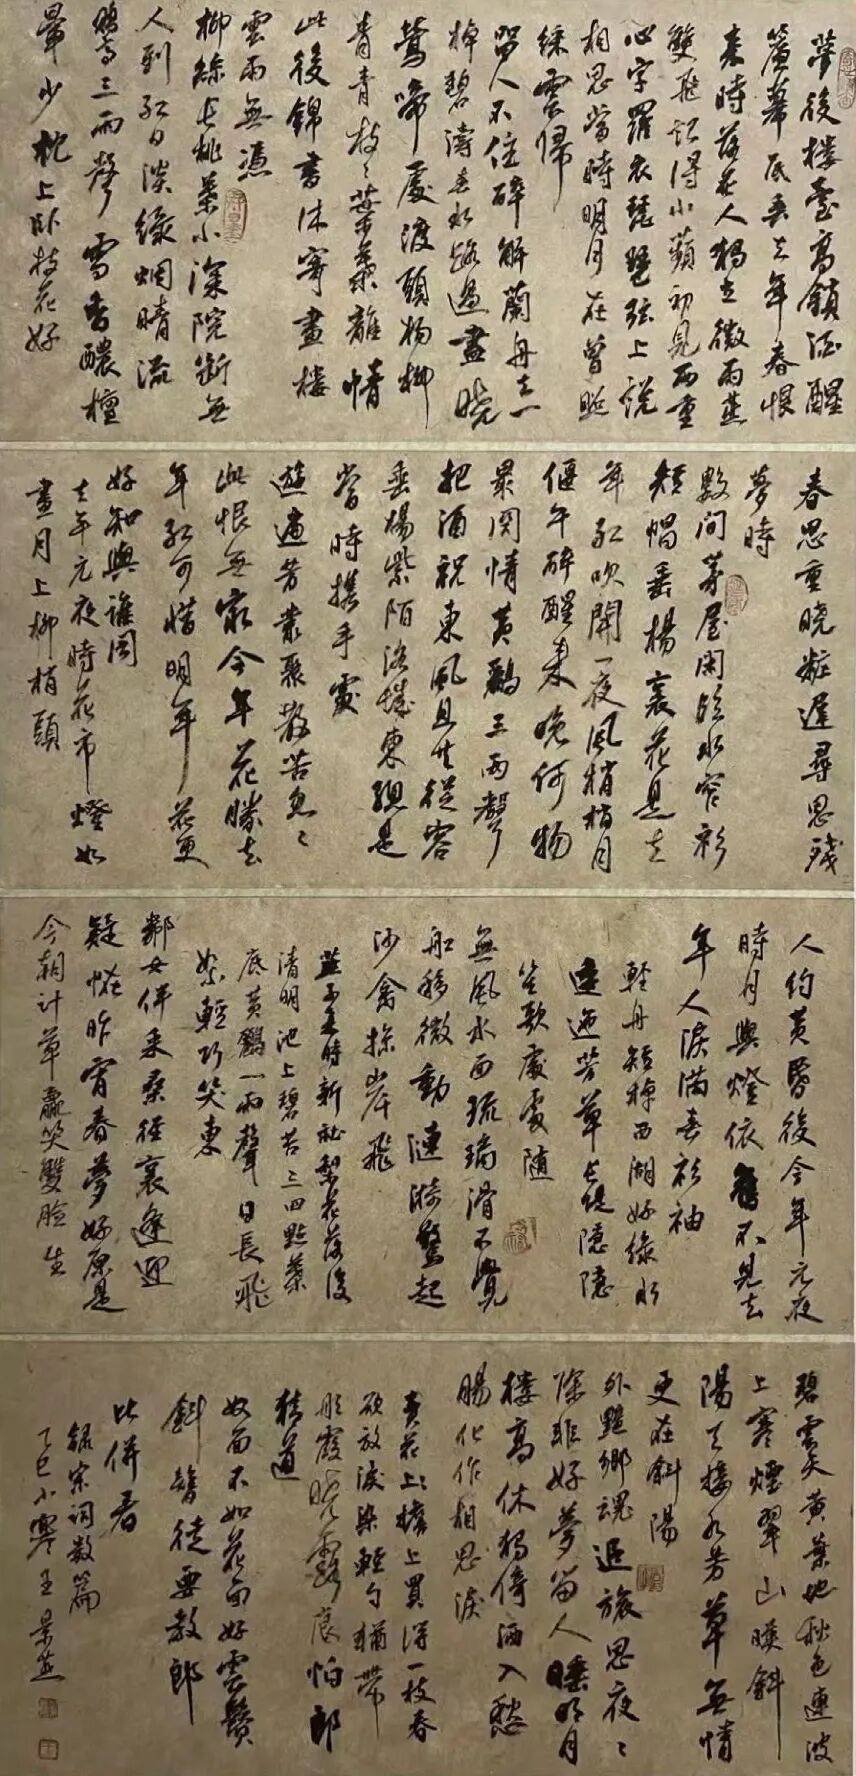 夢後樓臺高鎖酒醒
簾幕低垂去年春恨
來時落花人獨立微雨燕
雙飛記得小蘋初見兩重
心字羅衣琵琶弦上說
相思當時明月在曾照
綵雲歸
留人不住醉解蘭舟去一
棹碧濤春水路過盡曉
鶯啼處渡頭楊柳
青青枝〻葉葉離情
此後錦書休寄畫樓
雲雨無憑
柳絲長桃葉小深院斷無
人到紅日淡綠烟晴流
鶯三兩聲雪香醲檀
暈少枕上臥枝花好
春思重曉粧遲尋思殘
夢時
數間茅屋閑臨水窄衫
短帽垂楊裏花是去
年紅吹開一夜風梢梢月
偃午醉醒來晚何物
最關情黃鸝三兩聲
把酒祝東風且共從容
垂楊紫陌洛城東總是
當時攜手處
遊遍芳叢聚散苦匆〻
此恨無窮今年花勝去
年紅可惜明年花更
好知與誰同
去年元夜時花市燈如
晝月上柳梢頭
人約黃昏後今年元夜
時月與燈依舊不見去
年人淚滿春衫袖
輕舟短棹西湖好綠水
逶迤芳草長堤隱隱
笙歌處處隨
無風水面琉璃滑不覺
船移微動漣漪驚起
沙禽掠岸飛
燕子來時新社梨花落後
清明池上碧苔三四點葉
底黃鸝一兩聲日長飛
絮輕巧笑東
鄰女伴采桑徑裏逢迎
疑怪昨宵春夢好原是
今朝鬥草贏笑雙臉生
碧雲天黃葉地秋色連波
上寒煙翠山映斜
陽天接水芳草無情
更在斜陽
外黯鄉魂追旅思夜〻
除非好夢留人睡明月
樓高休獨倚酒入愁
腸化作相思淚
賣花上擔上買得一枝春
欲放淚染輕勻猶帶
彤霞曉露痕怕郎
猜道
奴面不如花面好雲鬢
斜簪徒要教郎
比併看
錄宋詞數篇
乙巳小寒王景燕